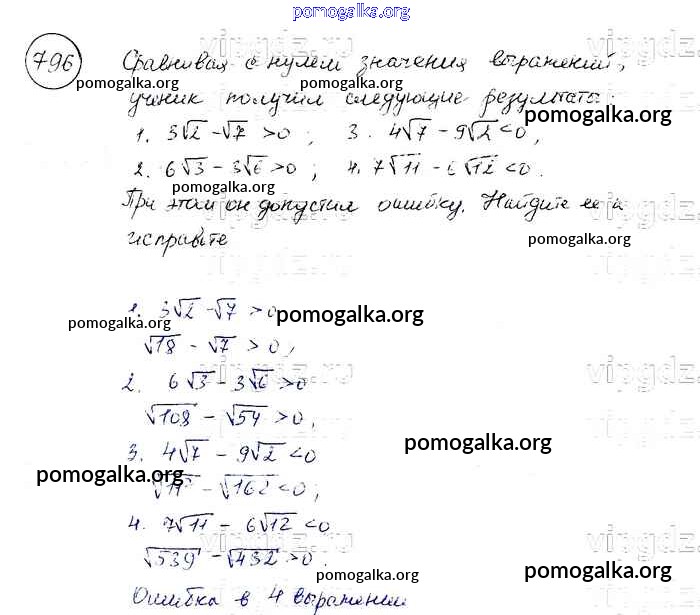 pomogalka.org
796 Сравнивая с нулём значения выражений,
pomogalka.org pomogalka.org
ученик получил следующие результаты:
pomogalka.org
1. 3√2 - √7 > 0; 3. 4√7 - 9√2 < 0,
2. 6√3 - 3√6 > 0; 4. 7√11 - 6√12 < 0.
pomogalka.org
При этом он допустил ошибку. Найдите её и
исправьте
pomogalka.org
1. 3√2 - √7 > 0
pomogalka.org pomogalka.org
√18 - √7 > 0,
2. 6√3 - 3√6 > 0
√108 - √54 > 0,
3. 4√7 - 9√2 < 0
pomogalka.org
pomogalka.org
- √162 < 0;
4. 7√11 - 6√12 < 0
√539 - √432 > 0.
pomogalka.org pomogalka.org
Ошибка в 4 выражении